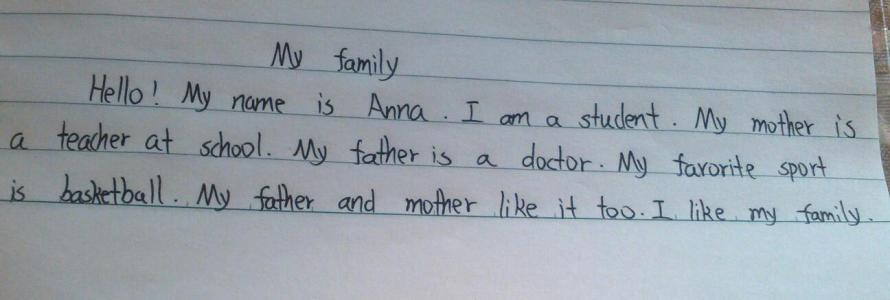 My family
Hello! My name is Anna. I am a student. My mother is
a teacher at school. My father is a doctor. My favorite sport
is basketball. My father and mother like it too. I like my family.